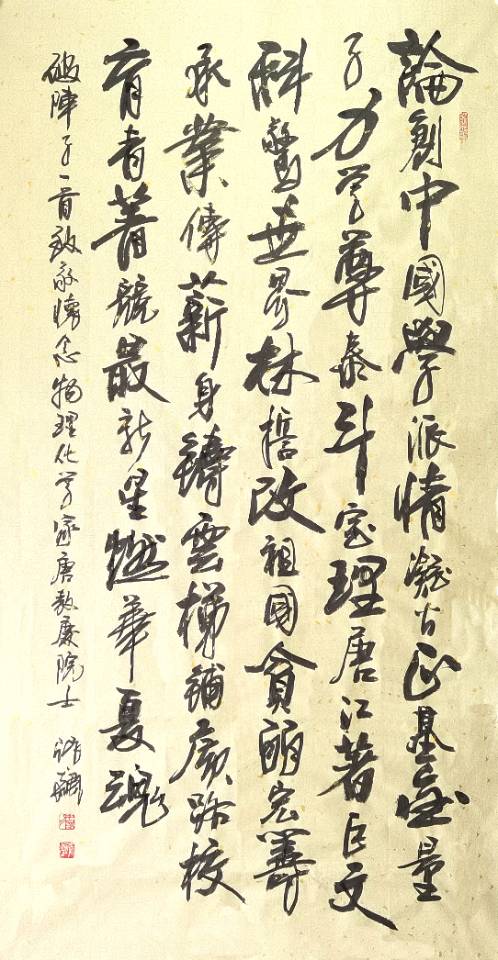 論創中國學派情凝古正基臺量
子力学尊泰斗室理唐江著巨文
科驚世界林 改祖國貧弱宏籌
承業傳薪身鑄雲梯鋪廣路校
育青菁競最新星燃華夏魂
破陣子一首致敬懷念物理化学家唐敖慶院士